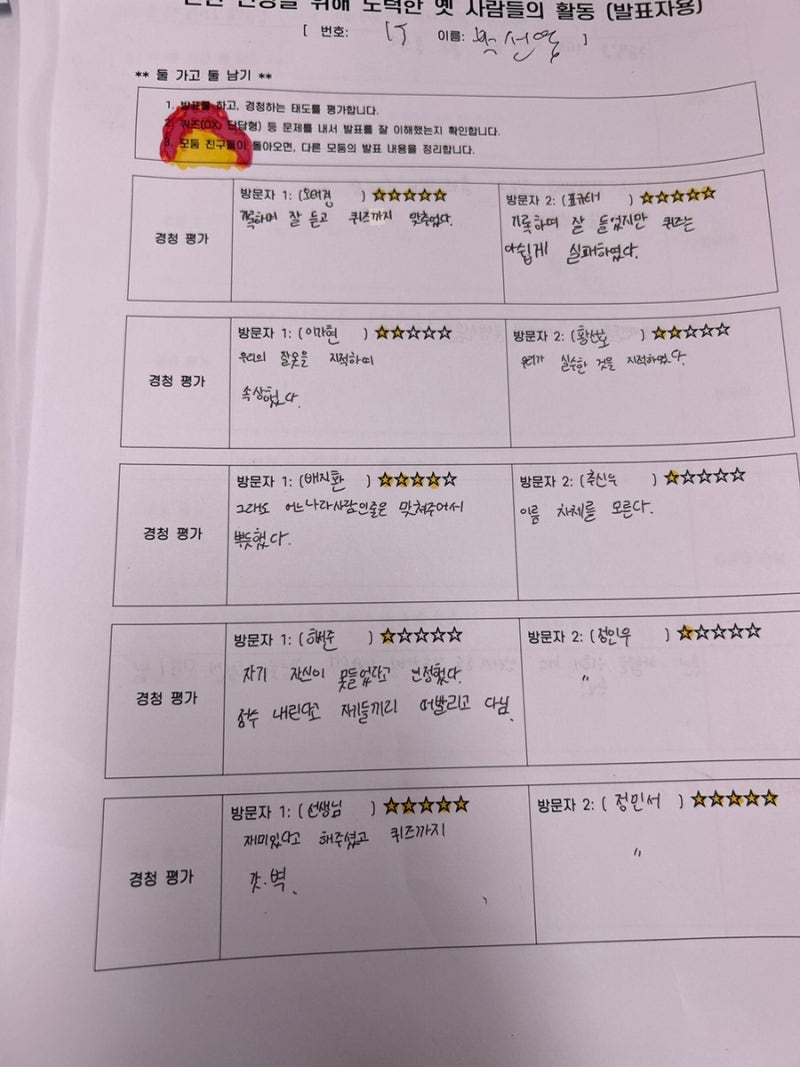 위해 노력한 옛 사람들의 활동 (발표자용)
[ 번호: 이름: ]
** 둘 가고 둘 남기 **
1. 발표를 하고, 경청하는 태도를 평가합니다.
2. 퀴즈(OX, 단답형) 등 문제를 내서 발표를 잘 이해했는지 확인합니다.
3. 모둠 친구들이 돌아오면, 다른 모둠의 발표 내용을 정리합니다.
경청 평가
방문자 1: (오태경 ) ★★★★★
기록하며 잘 듣고 퀴즈까지 맞추었다.
방문자 2: ( ) ★★★★★
기록하며 잘 들었지만 퀴즈는
아쉽게 실패하였다.
경청 평가
방문자 1: (이마현 ) ★★☆☆☆
우리의 잘못을 지적하여
속상했다.
방문자 2: (황선호 ) ★★☆☆☆
우리가 실수한 것을 지적하였다.
경청 평가
방문자 1: (배지환 ) ★★★★☆
그래도 어느나라사람인줄은 맞쳐주어서
뿌듯했다.
방문자 2: (추신우 ) ★☆☆☆☆
이름 자체를 모른다.
경청 평가
방문자 1: (해준 ) ★☆☆☆☆
자기 자신이 못들었다고 인정했다.
점수 내린다고 자기들끼리 떠벌리고 다님.
방문자 2: (정인우 ) ★☆☆☆☆
〃
경청 평가
방문자 1: (선생님 ) ★★★★★
재미있다고 해주셨고 퀴즈까지
갓.벽.
방문자 2: ( 정민서 ) ★★★★★
〃